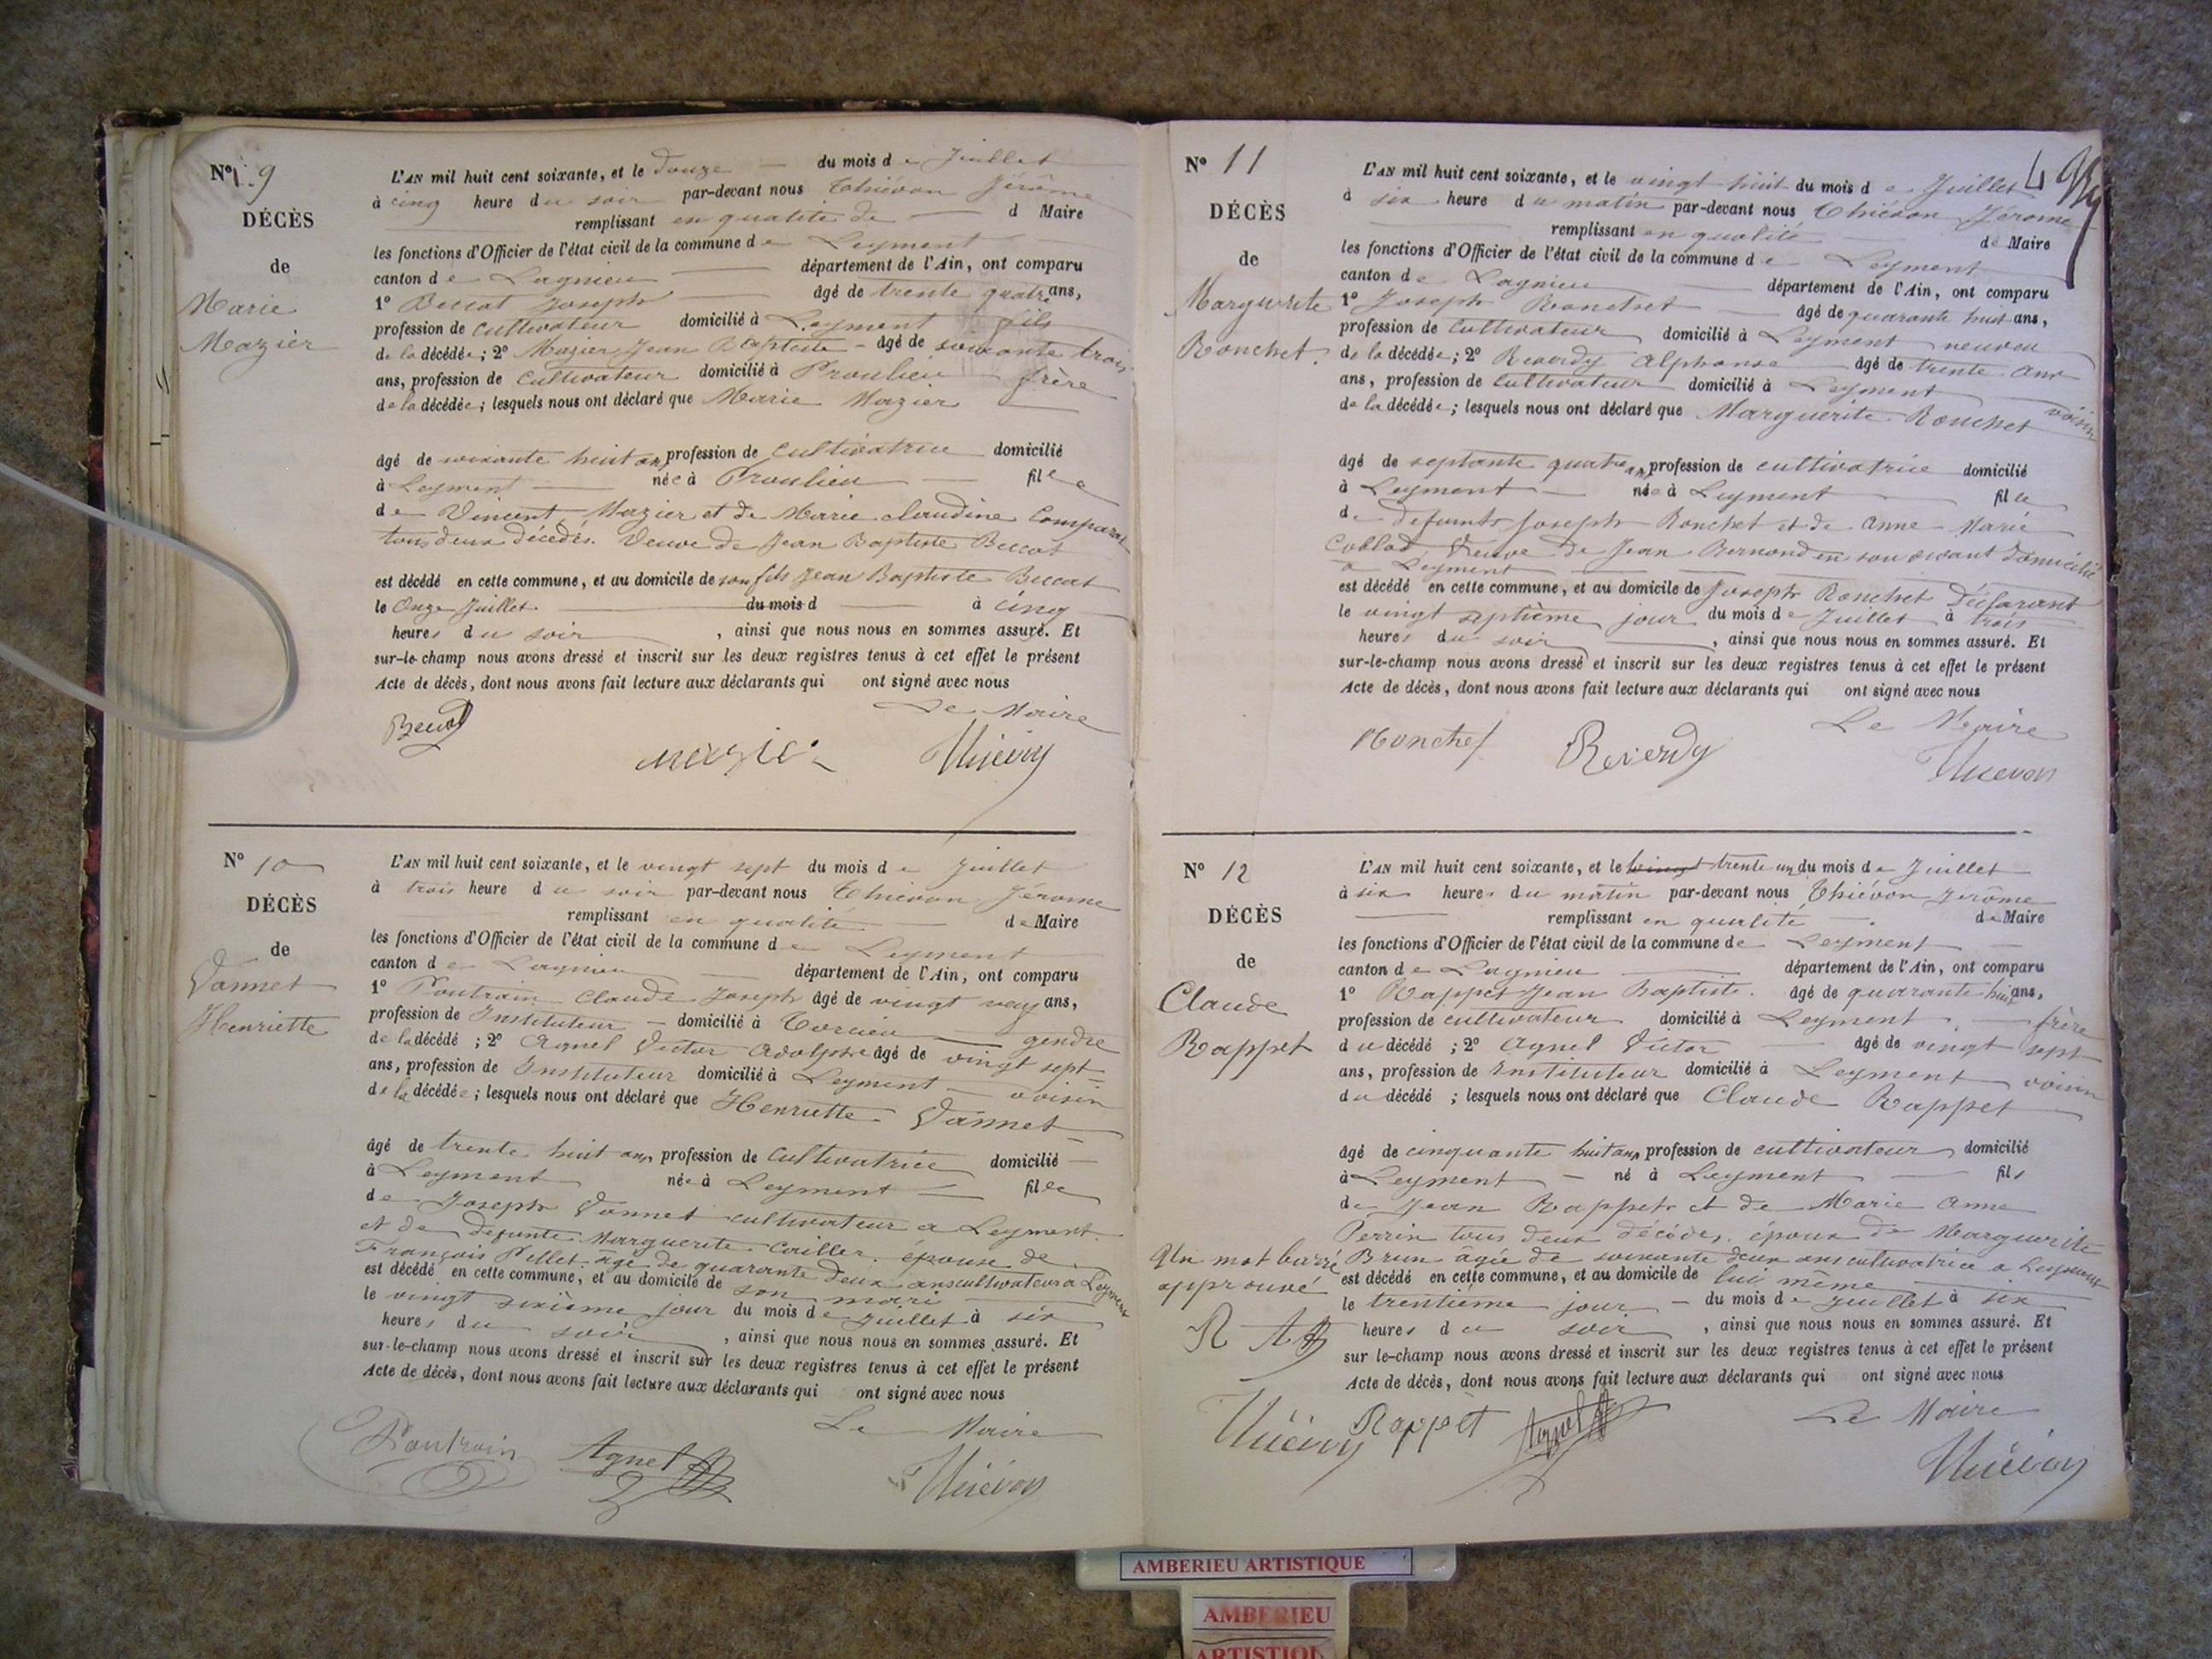 N° 9
DÉCÈS
de
Marie
Mazier
L'AN mil huit cent soixante, et le douze du mois de Juillet
à cinq heure du soir par-devant nous Thiévon Jérôme
remplissant en qualité de d Maire
les fonctions d'Officier de l'état civil de la commune de Leyment
canton de Lagnieu département de l'Ain, ont comparu
1° Beccat Joseph âgé de trente quatre ans,
profession de cultivateur domicilié à Leyment fils
de la décédée; 2° Mazier Jean Baptiste âgé de soixante trois
ans, profession de cultivateur domicilié à Proulieu frère
de la décédée; lesquels nous ont déclaré que Marie Mazier
âgé de soixante huit ans profession de cultivatrice domicilié
à Leyment née à Proulieu fille
de Vincent Mazier et de Marie Claudine
tous deux décédés. Veuve de Jean Baptiste Beccat
est décédé en cette commune, et au domicile de son fils Jean Baptiste Beccat
le Onze Juillet du mois d à cinq
heures du soir , ainsi que nous nous en sommes assuré. Et
sur-le-champ nous avons dressé et inscrit sur les deux registres tenus à cet effet le présent
Acte de décès, dont nous avons fait lecture aux déclarants qui ont signé avec nous
Le Maire
mazier Thiévon
N° 10
DÉCÈS
de
Vannet
Henriette
L'AN mil huit cent soixante, et le vingt sept du mois de Juillet
à trois heure du soir par-devant nous Thiévon Jérome
remplissant en qualité de Maire
les fonctions d'Officier de l'état civil de la commune de Leyment
canton de Lagnieu département de l'Ain, ont comparu
1° Poutrain Claude Joseph âgé de vingt neuf ans,
profession de Instituteur domicilié à Torcieu gendre
de la décédé ; 2° Agnel Victor Adolphe âgé de vingt sept
ans, profession de Instituteur domicilié à Leyment voisin
de la décédée; lesquels nous ont déclaré que Henriette Vannet
âgé de trente huit ans profession de cultivatrice domicilié
à Leyment née à Leyment fille
de Joseph Vannet cultivateur a Leyment
et de defunte Marguerite épouse de
François Pellet âgé de quarante deux ans cultivateur a Leyment
est décédé en cette commune, et au domicile de son mari
le vingt sixième jour du mois de Juillet à six
heures du soir , ainsi que nous nous en sommes assuré. Et
sur-le-champ nous avons dressé et inscrit sur les deux registres tenus à cet effet le présent
Acte de décès, dont nous avons fait lecture aux déclarants qui ont signé avec nous
Le Maire
Poutrain Agnel Thiévon
N° 11
DÉCÈS
de
Marguerite
Ronchet
L'AN mil huit cent soixante, et le vingt huit du mois de Juillet
à six heure du matin par-devant nous Thiévon Jérome
remplissant en qualité de Maire
les fonctions d'Officier de l'état civil de la commune de Leyment
canton de Lagnieu département de l'Ain, ont comparu
1° Joseph Ronchet âgé de quarante huit ans,
profession de cultivateur domicilié à Leyment neveu
de la décédée; 2° Reverdy Alphonse âgé de trente ans
ans, profession de cultivateur domicilié à Leyment voisin
de la décédée; lesquels nous ont déclaré que Marguerite Ronchet
âgé de septante quatre ans profession de cultivatrice domicilié
à Leyment née à Leyment fille
de defunts Joseph Ronchet et de Anne Marie
Veuve de Jean en son vivant domicilié
a Leyment
est décédé en cette commune, et au domicile de Joseph Ronchet Déclarant
le vingt septième jour du mois de Juillet à trois
heures du soir , ainsi que nous nous en sommes assuré. Et
sur-le-champ nous avons dressé et inscrit sur les deux registres tenus à cet effet le présent
Acte de décès, dont nous avons fait lecture aux déclarants qui ont signé avec nous
Le Maire
Ronchet Reverdy Thievon
N° 12
DÉCÈS
de
Claude
Rappet
L'AN mil huit cent soixante, et le vingt trente un du mois de Juillet
à six heures du matin par-devant nous Thiévon Jérôme
remplissant en qualité de Maire
les fonctions d'Officier de l'état civil de la commune de Leyment
canton de Lagnieu département de l'Ain, ont comparu
1° Rappet Jean Baptiste âgé de quarante huit ans,
profession de cultivateur domicilié à Leyment frère
du décédé ; 2° Agnel Victor âgé de vingt sept
ans, profession de Instituteur domicilié à Leyment voisin
du décédé ; lesquels nous ont déclaré que Claude Rappet
âgé de cinquante huit ans profession de cultivateur domicilié
à Leyment né à Leyment fils
de Jean Rappet et de Marie Anne
Perrin tous deux décédés. époux de Marguerite
Brun âgée de soixante deux ans cultivatrice a Leyment
est décédé en cette commune, et au domicile de lui même
le trentième jour du mois de Juillet à six
heures du soir , ainsi que nous nous en sommes assuré. Et
sur le-champ nous avons dressé et inscrit sur les deux registres tenus à cet effet le présent
Acte de décès, dont nous avons fait lecture aux déclarants qui ont signé avec nous
Un mot barré
approuvé
Le Maire
Thiévon Rappet Agnel Thiévon
AMBERIEU ARTISTIQUE
AMBERIEU